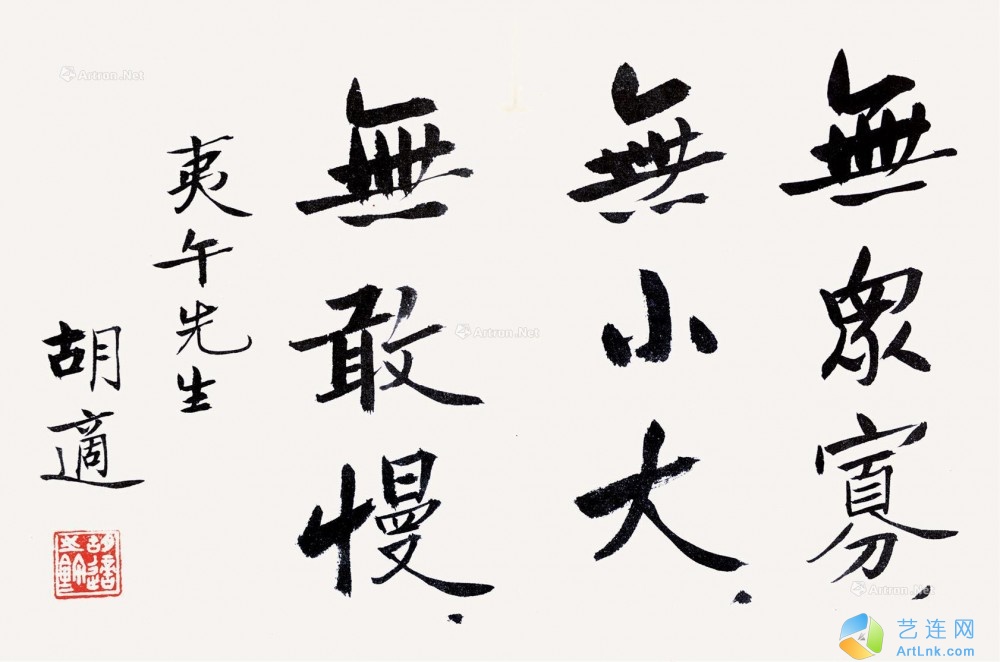 無眾寡，
無小大，
無敢慢．
夷午先生
胡適
胡適之鉨
Artron.Net
Artron.Net
Artron.Net
艺连网
ArtLnk.com